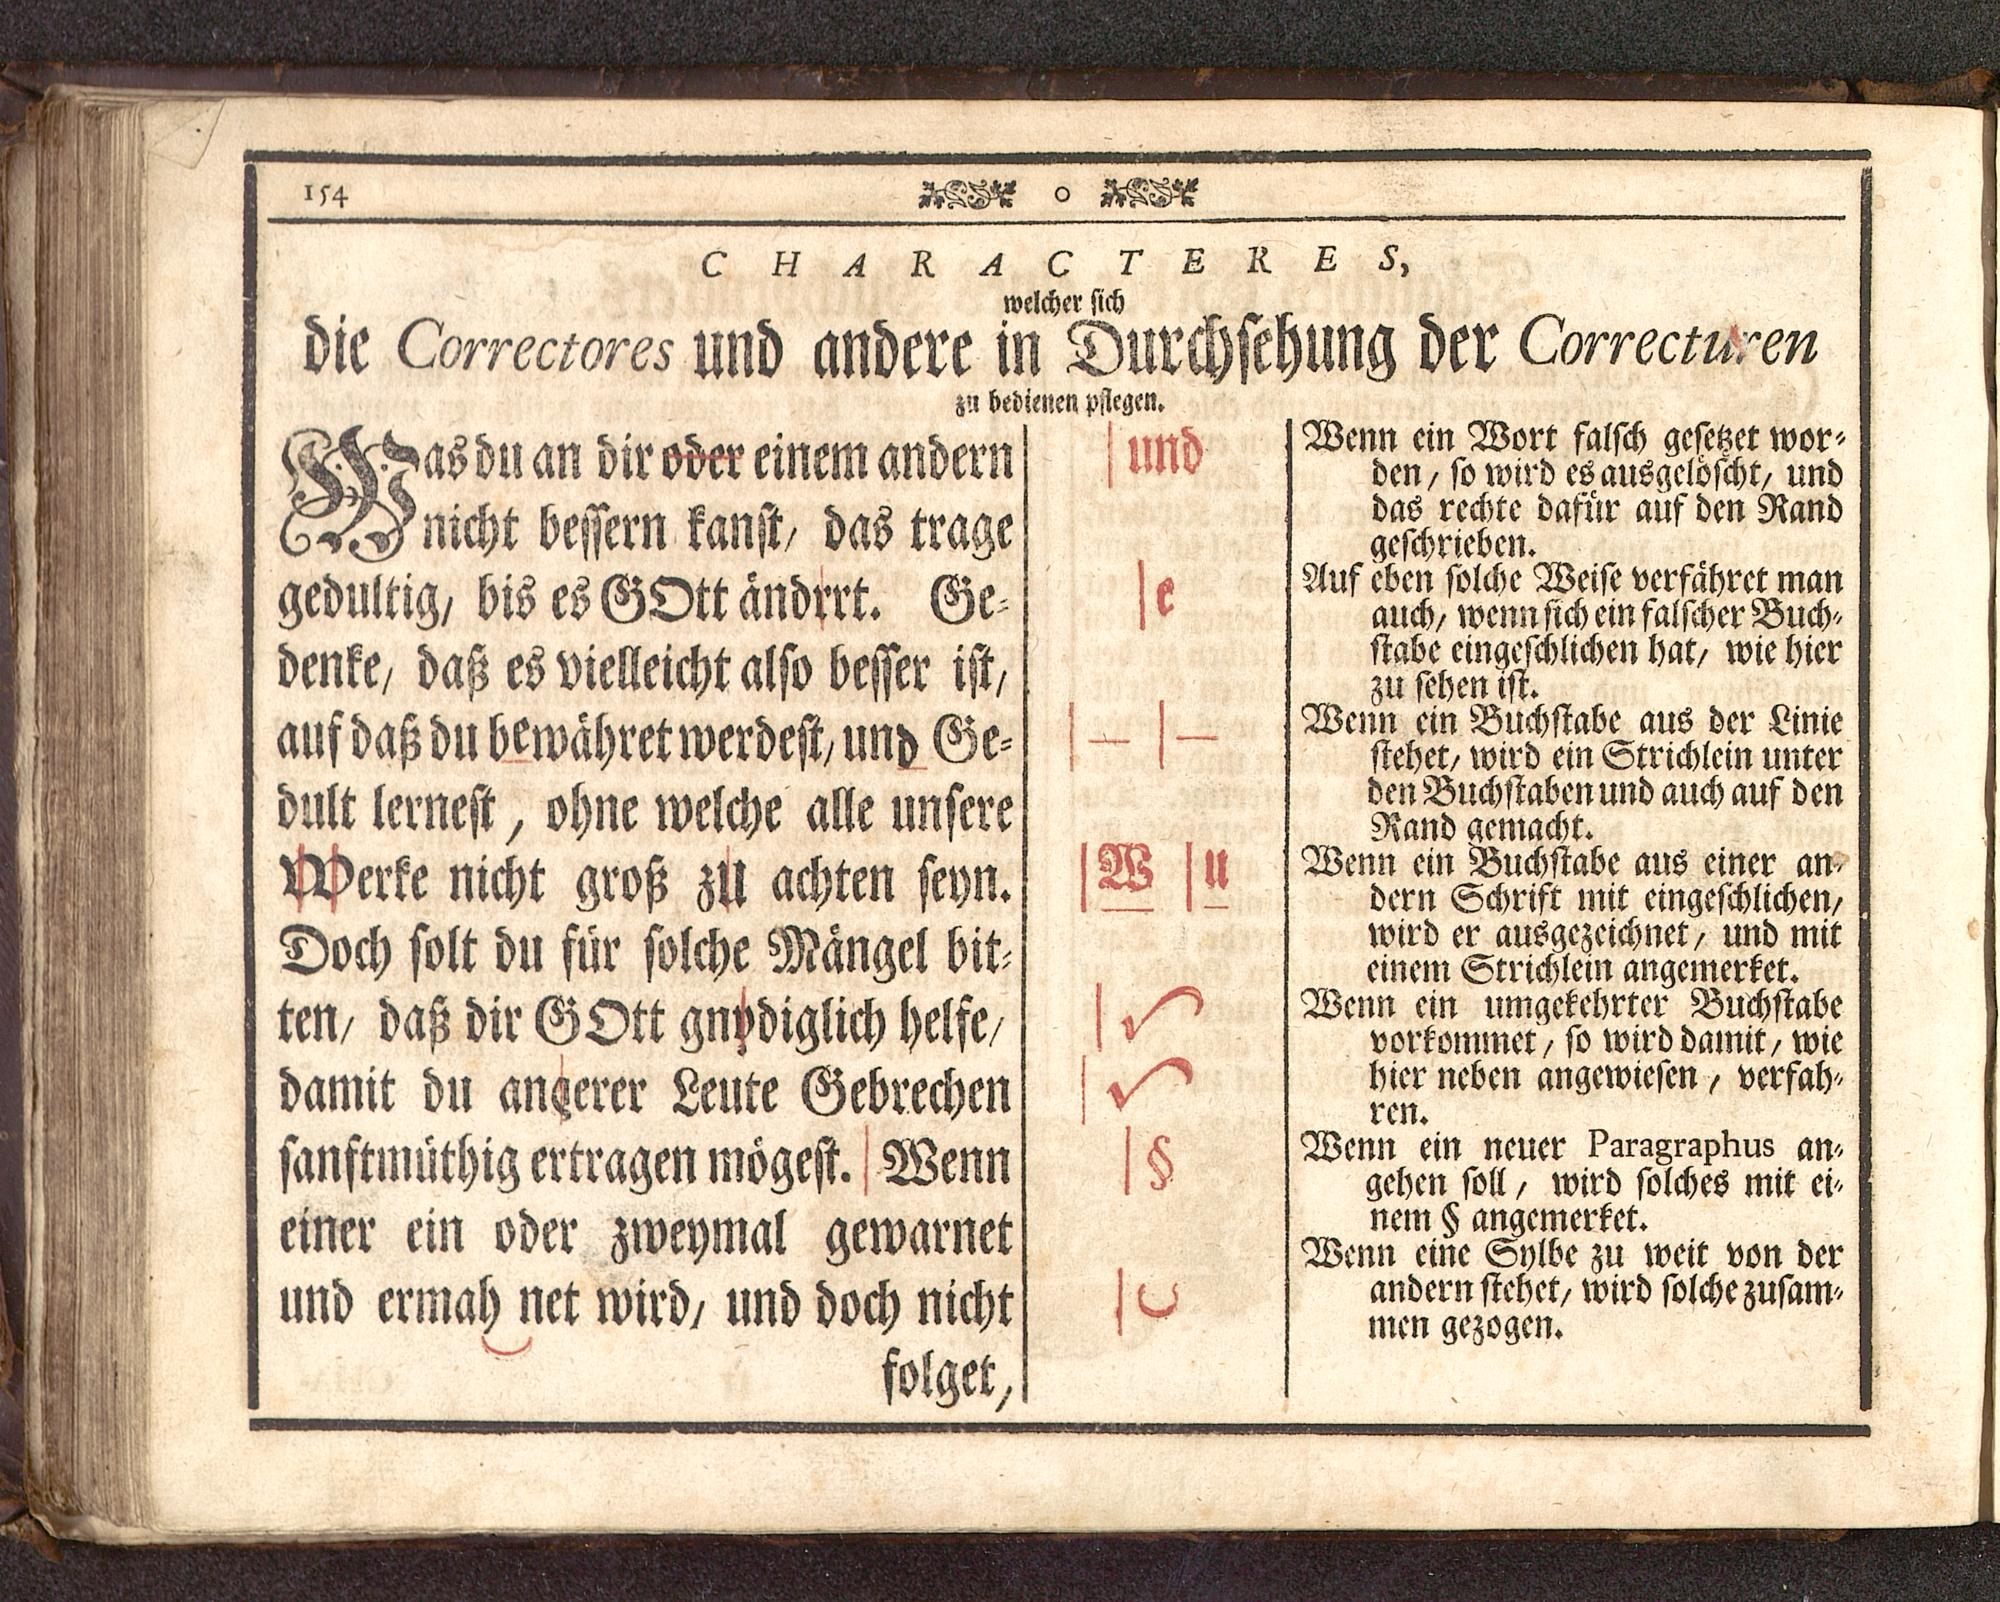 154
o
CHARACTERES,
welcher sich
die Correctores und andere in Durchsehung der Correcturen
zu bedienen pflegen.
Was du an dir oder einem andern
nicht bessern kanst, das trage
gedultig, bis es GOtt ändrrt. Ge-
denke, daß es vielleicht also besser ist,
auf daß du bewähret werdest, und Ge-
dult lernest, ohne welche alle unsere
Werke nicht groß zu achten seyn.
Doch solt du für solche Mängel bit-
ten, daß dir GOtt gnydiglich helfe,
damit du anderer Leute Gebrechen
sanftmüthig ertragen mögest. | Wenn
einer ein oder zweymal gewarnet
und ermah net wird, und doch nicht
folget,
| und
| e
| — | —
| W | u
|
|
| §
|
Wenn ein Wort falsch gesetzet wor-
den, so wird es ausgelöscht, und
das rechte dafür auf den Rand
geschrieben.
Auf eben solche Weise verfähret man
auch, wenn sich ein falscher Buch-
stabe eingeschlichen hat, wie hier
zu sehen ist.
Wenn ein Buchstabe aus der Linie
stehet, wird ein Strichlein unter
den Buchstaben und auch auf den
Rand gemacht.
Wenn ein Buchstabe aus einer an-
dern Schrift mit eingeschlichen,
wird er ausgezeichnet, und mit
einem Strichlein angemerket.
Wenn ein umgekehrter Buchstabe
vorkommet, so wird damit, wie
hier neben angewiesen, verfah-
ren.
Wenn ein neuer Paragraphus an-
gehen soll, wird solches mit ei-
nem § angemerket.
Wenn eine Sylbe zu weit von der
andern stehet, wird solche zusam-
men gezogen.